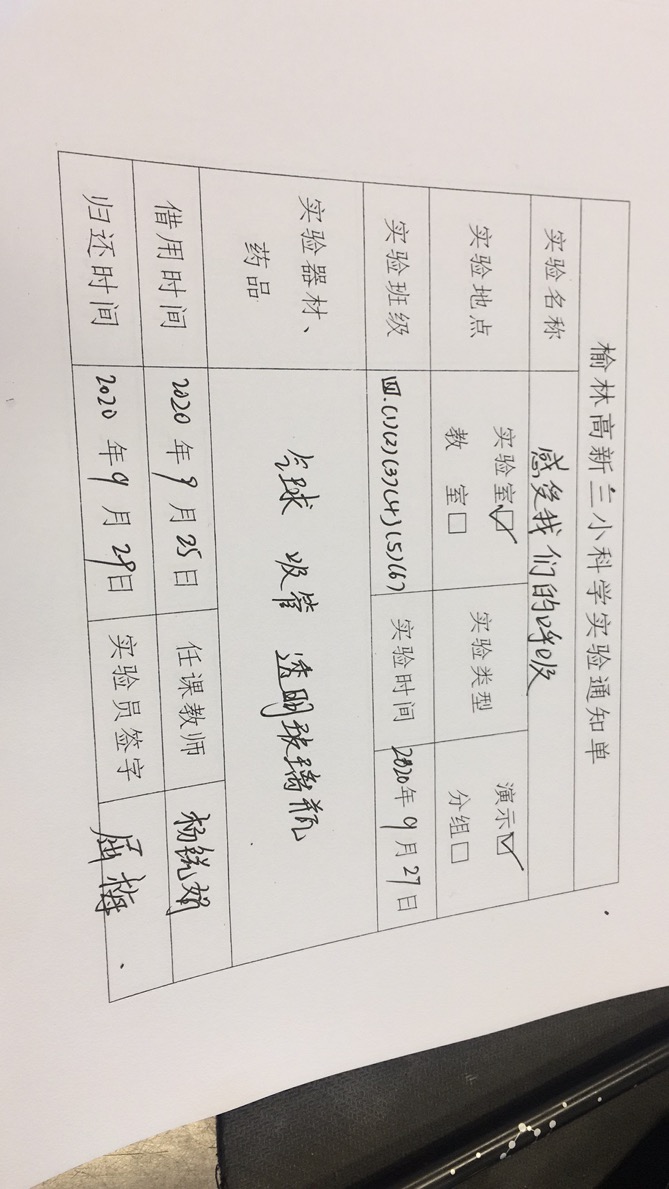 榆林高新三小科学实验通知单
实验名称 感受我们的呼吸
实验地点 实验室☑ 教 室□ 实验类型 演示☑ 分组□
实验班级 四.(1)(2)(3)(4)(5)(6) 实验时间 2020年9月27日
实验器材、药品 气球 吸管 透明玻璃瓶
借用时间 2020年9月25日 任课教师 杨锐娟
归还时间 2020年9月29日 实验员签字 屈梅